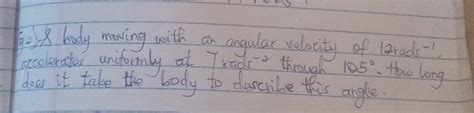 Eg 2) A body moving with an angular velocity of 12rads⁻¹,
accelerates uniformly at 7rads⁻² through 105°. How long
does it take the body to describe this angle.